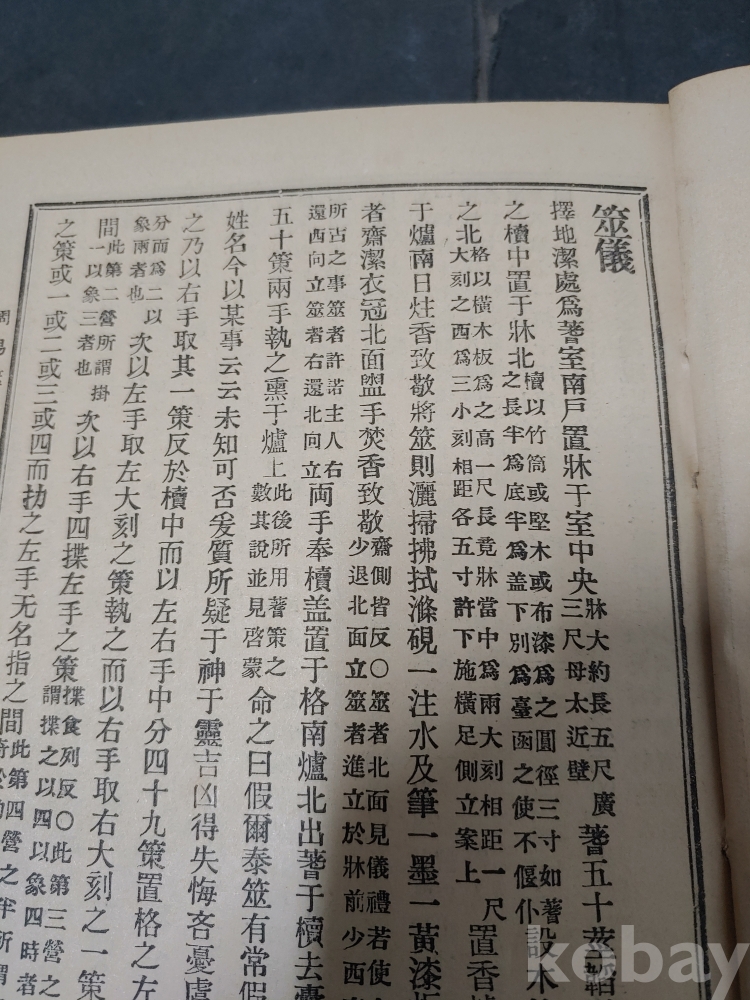 筮儀
擇地潔處爲蓍室南戶置牀于室中央牀大約長五尺廣三尺母太近壁蓍五十莖韜
之櫝中置于牀北櫝以竹筒或堅木或布漆爲之圓徑三寸如蓍之長半爲底半爲盖下別爲臺函之使不偃仆設木
之北格以橫木板爲之高一尺長竟牀當中爲兩大刻相距一尺大刻之西爲三小刻相距各五寸許下施橫足側立案上置香
于爐南日炷香致敬將筮則灑掃拂拭滌硯一注水及筆一墨一黃漆板
者齋潔衣冠北面盥手焚香致敬齋側皆反〇筮者北面見儀禮若使人少退北面立筮者進立於牀前少西
所占之事筮者許諾主人右還西向立筮者右還北向立兩手奉櫝盖置于格南爐北出蓍于櫝去囊
五十策兩手執之熏于爐上此後所用蓍策之數其說並見啓蒙命之曰假爾泰筮有常假
姓名今以某事云云未知可否爰質所疑于神于靈吉凶得失悔吝憂虞
之乃以右手取其一策反於櫝中而以左右手中分四十九策置格之左
分而爲二以象兩者也次以左手取左大刻之策執之而以右手取右大刻之一策
間此第二營所謂掛一以象三者也次以右手四揲左手之策揲食列反〇此第三營之謂揲之以四以象四時者
之策或一或二或三或四而扐之左手无名指之間此第四營之半所謂
周易
kobay